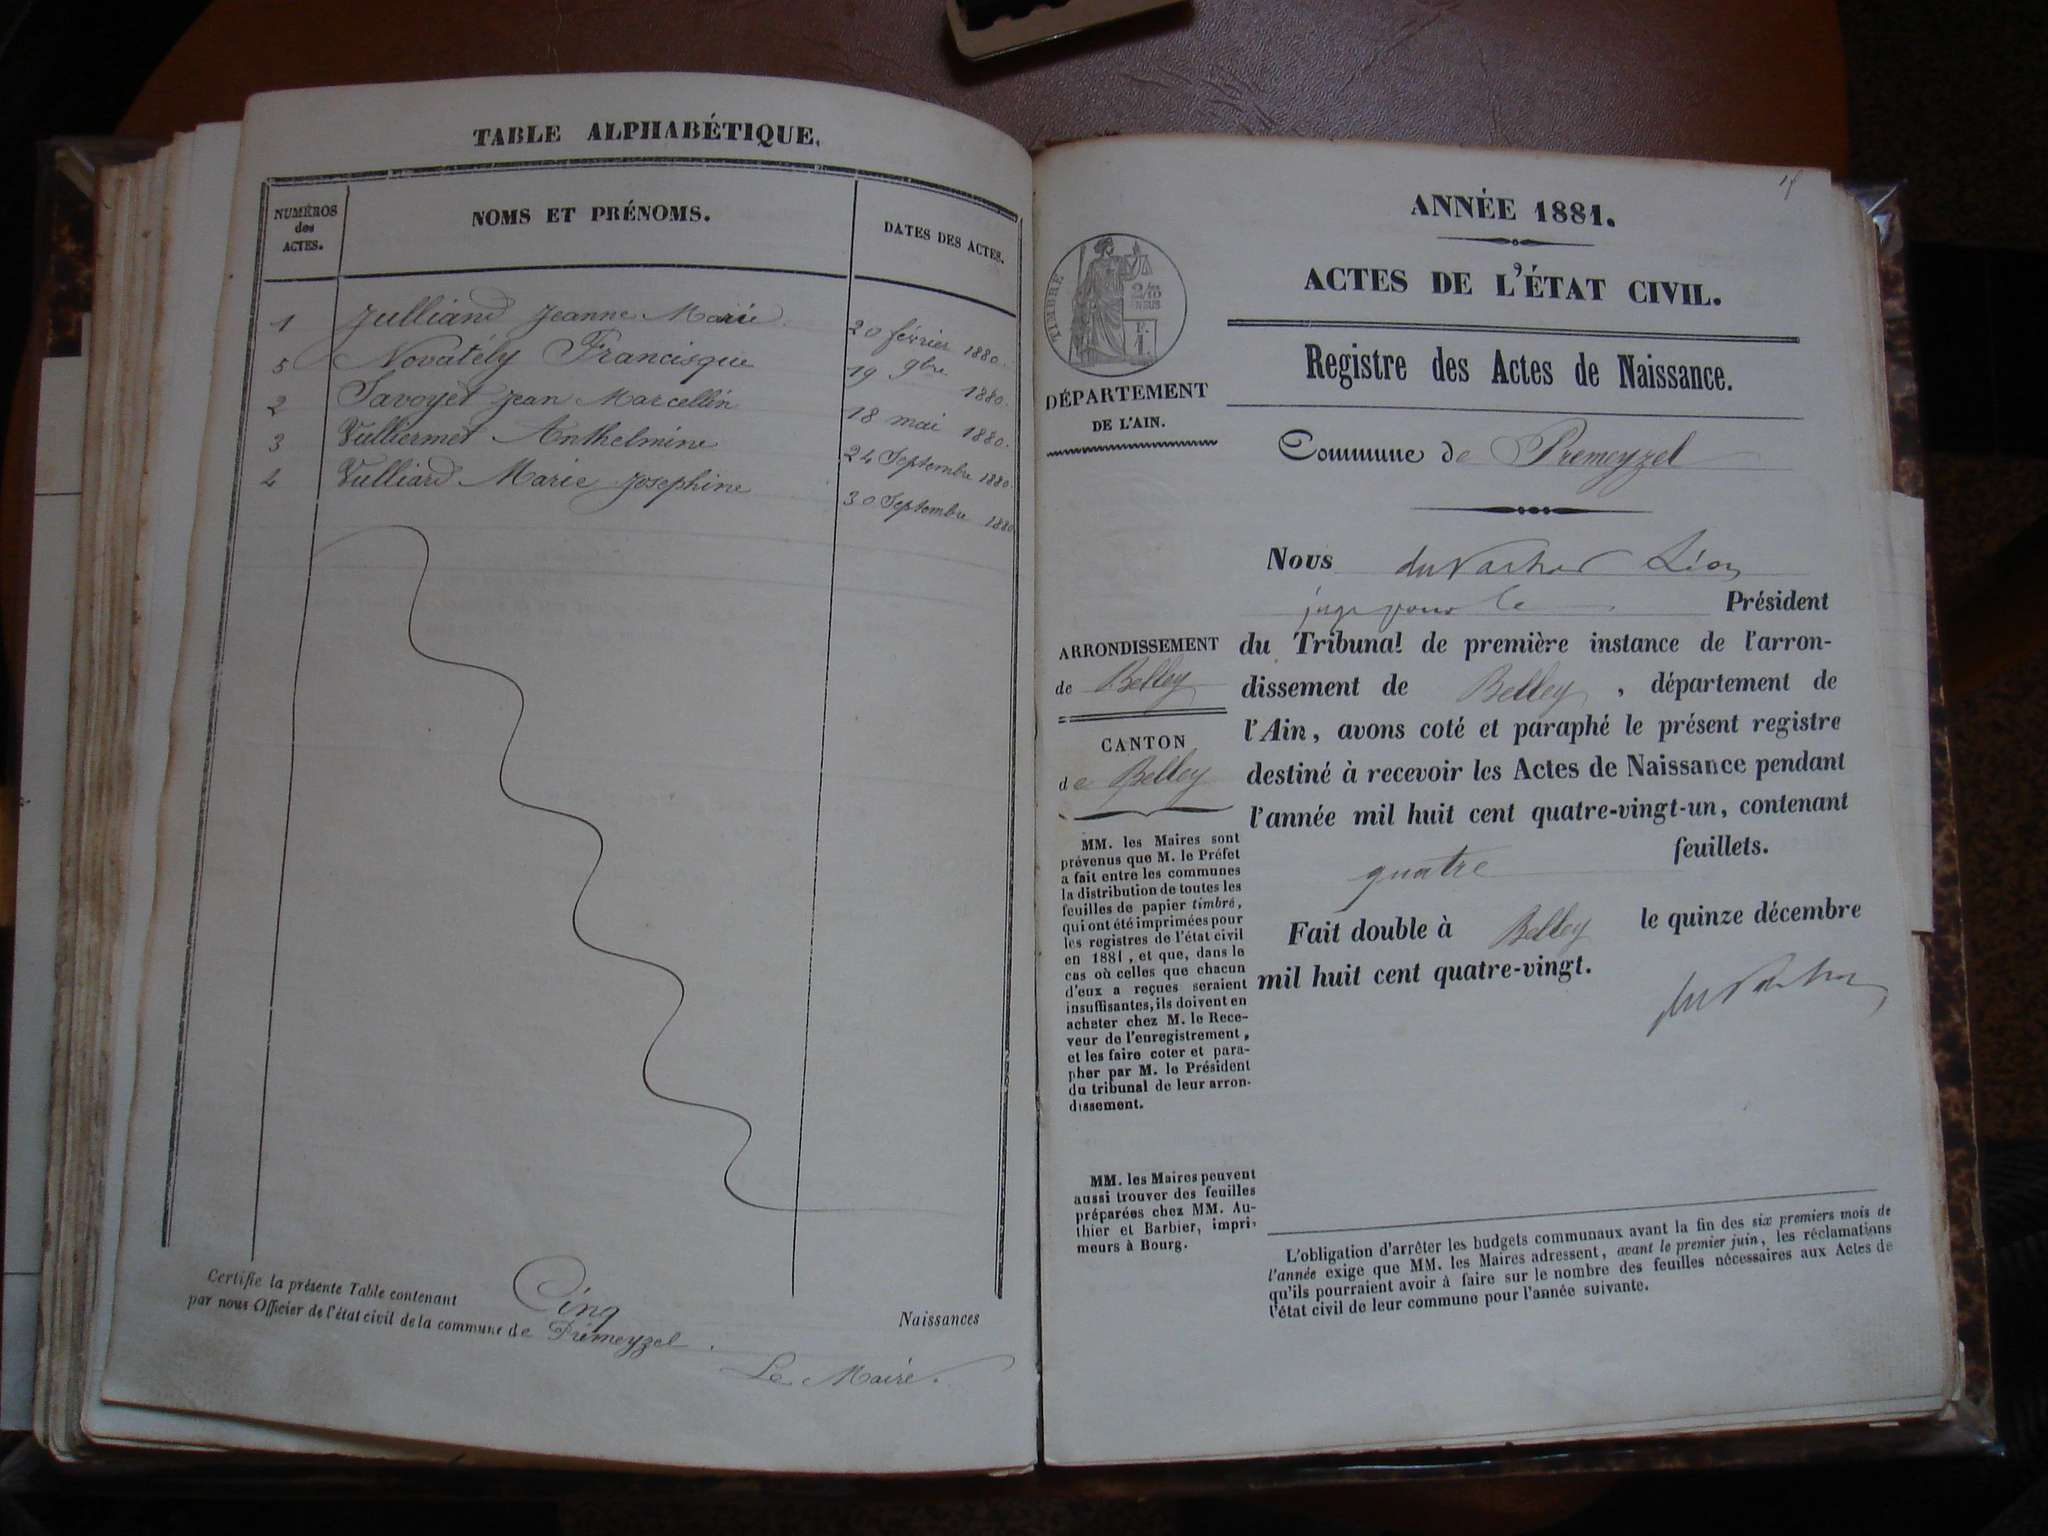 TABLE ALPHABÉTIQUE.
NUMÉROS des ACTES.
NOMS ET PRÉNOMS.
DATES DES ACTES.
1 Julliand Jeanne Marie 20 février 1880.
5 Novatély Francisque 19 9bre 1880.
2 Savoyet Jean Marcellin 18 mai 1880.
3 Vulliermet Anthelmine 24 Septembre 1880.
4 Vulliard Marie Josephine 30 Septembre 1880
Certifie la présente Table contenant Cinq Naissances
par nous Officier de l'état civil de la commune de Prémeyzel.
Le Maire.
ANNÉE 1881.
ACTES DE L'ÉTAT CIVIL.
TIMBRE
2/10
EN SUS
F.
1.
DÉPARTEMENT
DE L'AIN.
Registre des Actes de Naissance.
Commune de Premeyzel
Nous Léon
juge pour le Président
du Tribunal de première instance de l'arron-
dissement de Belley, département de
l'Ain, avons coté et paraphé le présent registre
destiné à recevoir les Actes de Naissance pendant
l'année mil huit cent quatre-vingt-un, contenant
quatre feuillets.
Fait double à Belley le quinze décembre
mil huit cent quatre-vingt.
ARRONDISSEMENT
de Belley
CANTON
de Belley
MM. les Maires sont
prévenus que M. le Préfet
a fait entre les communes
la distribution de toutes les
feuilles de papier timbré,
qui ont été imprimées pour
les registres de l'état civil
en 1881, et que, dans le
cas où celles que chacun
d'eux a reçues seraient
insuffisantes, ils doivent en
acheter chez M. le Rece-
veur de l'enregistrement,
et les faire coter et para-
pher par M. le Président
du tribunal de leur arron-
dissement.
MM. les Maires peuvent
aussi trouver des feuilles
préparées chez MM. Au-
thier et Barbier, impri-
meurs à Bourg.
L'obligation d'arrêter les budgets communaux avant la fin des six premiers mois de
l'année exige que MM. les Maires adressent, avant le premier juin, les réclamations
qu'ils pourraient avoir à faire sur le nombre des feuilles nécessaires aux Actes de
l'état civil de leur commune pour l'année suivante.